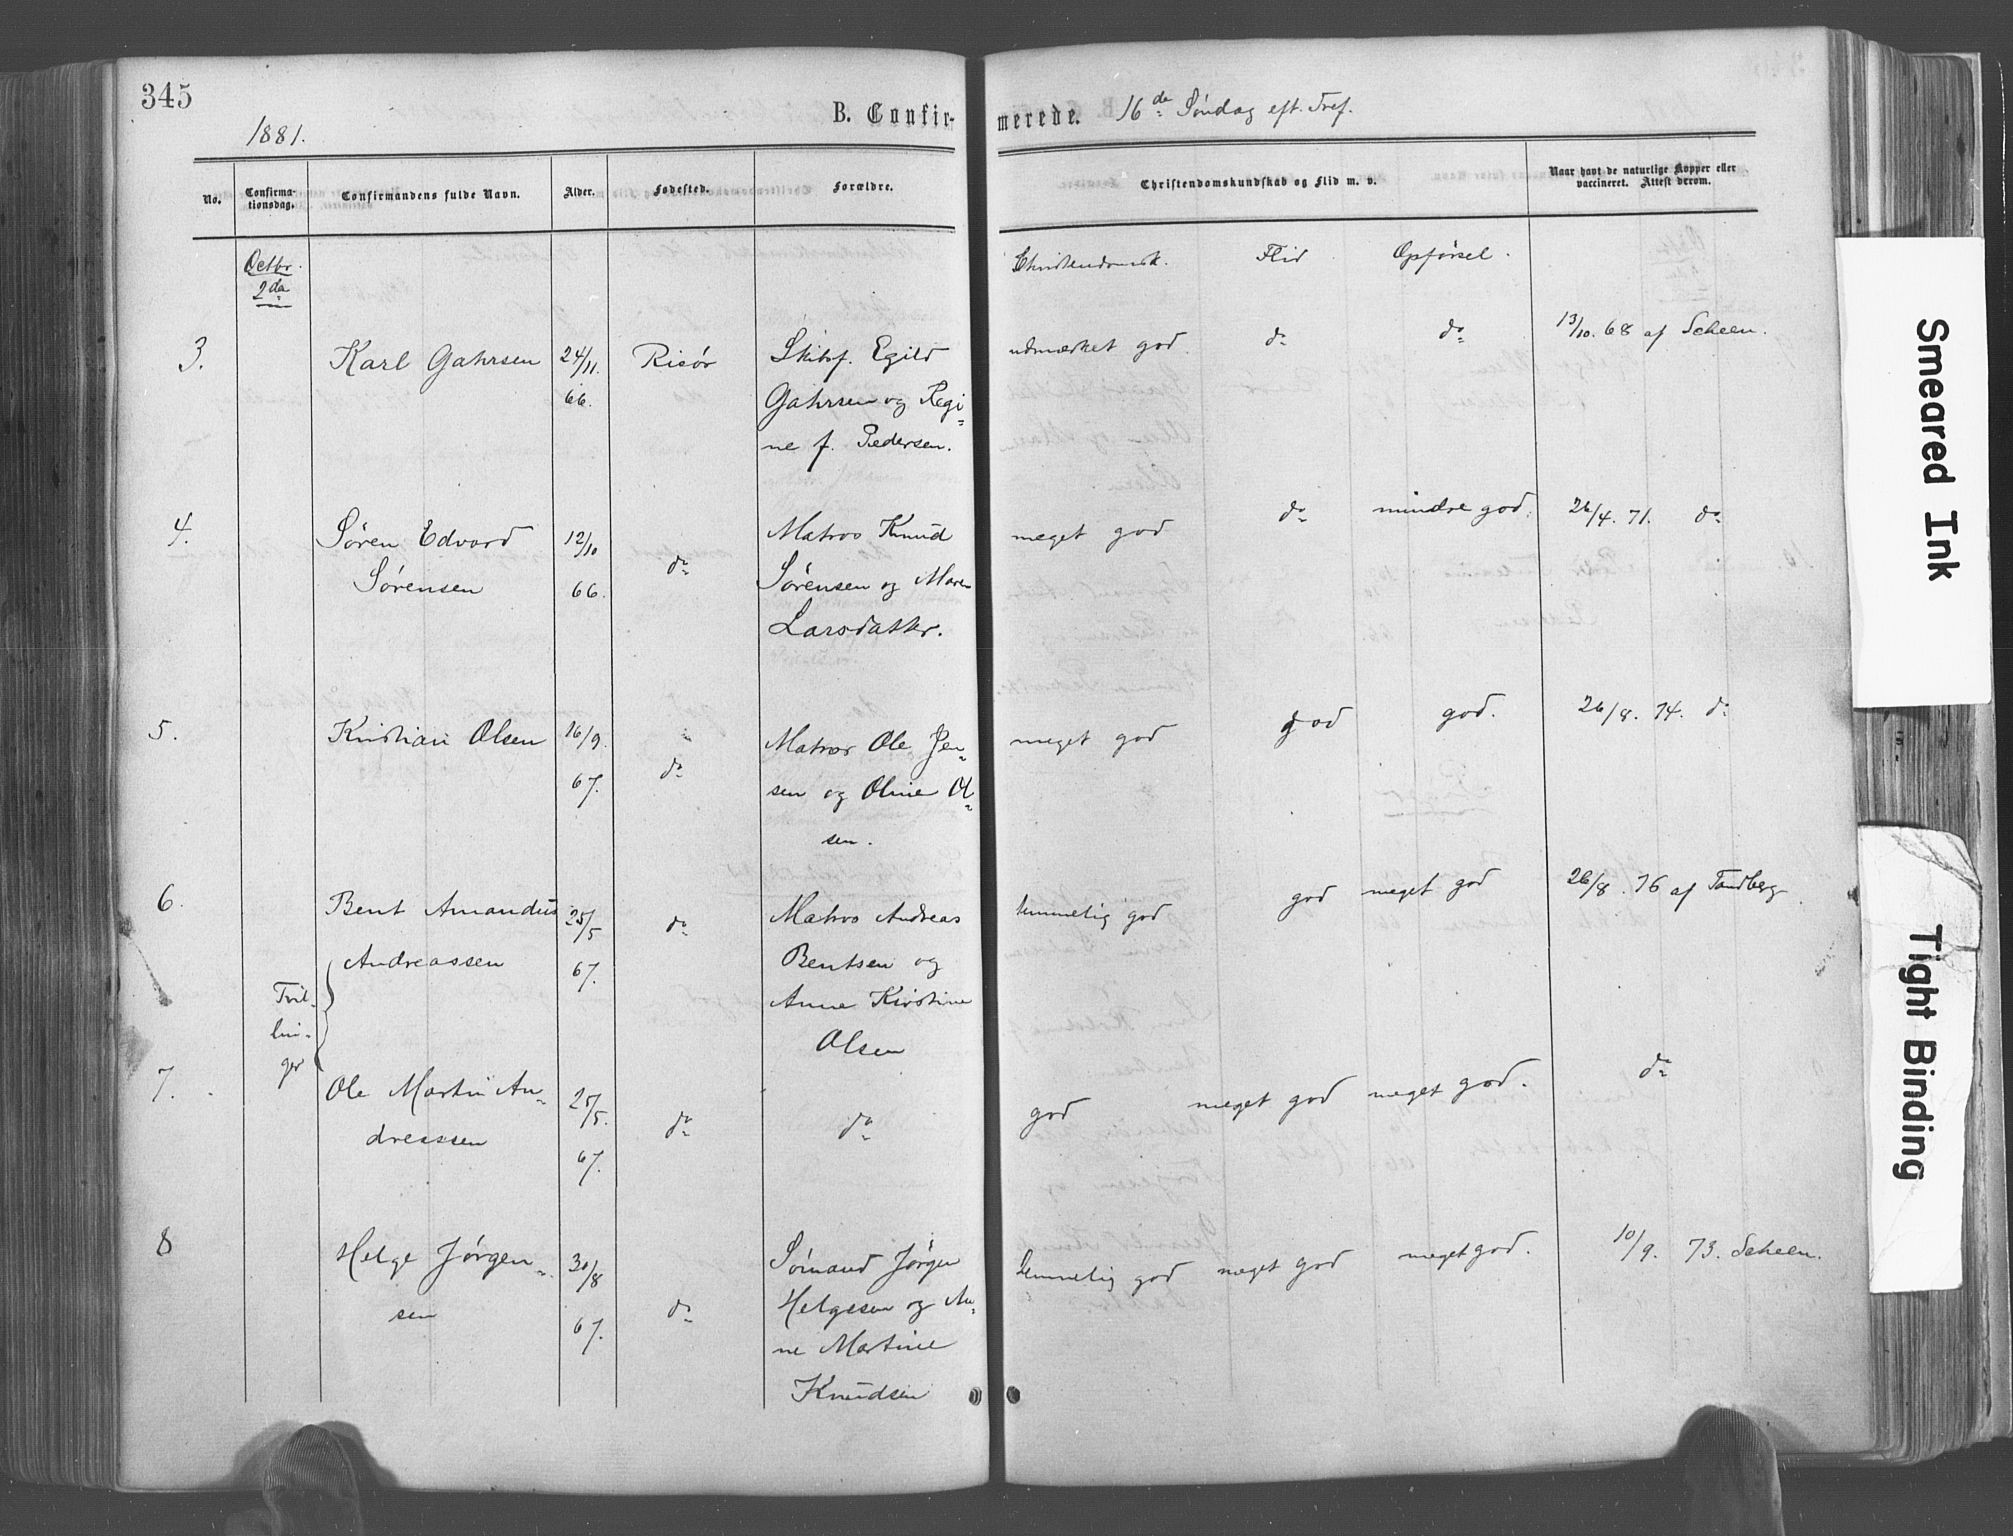 345
1881.
B. Confir-
merede. 16de Søndag eft. Tref.
No.
Confirma-
tionsdag.
Confirmandens fulde Navn.
Alder.
Fødested.
Forældre.
Christendomskundskab og Flid m. v.
Naar havt de naturlige Kopper eller
vaccineret. Attest derom.
Octbr.
2den
Christendomsk. Flid Opførsel.
3. Karl Gahrsen 24/11. Risør Skibsf. Egild udmærket god do do 13/10. 68 af Scheen.
66. Gahrsen og Regi-
ne f. Pedersen.
4. Søren Edvard 12/10 do Matros Knud meget god do mindre god. 26/4. 71. do
Sørensen 66. Sørensen og Maren
Larsdatter.
5. Kristian Olsen 16/9. do Matros Ole Jen- meget god god god. 26/8. 74. do
67. sen og Oline Ol-
sen.
6. Bent Amandus 25/5 do Matros Andreas temmelig god god meget god 26/8. 76 af Tandberg.
Andreassen 67. Bentsen og
Tvil- Anne Kirstine
lin- Olsen
ger
7. Ole Martin An- 25/5. do do god meget god meget god. do
dreassen 67.
8 Helge Jørgen- 30/8 do Sømand Jørgen temmelig god meget god meget god. 10/9. 73. Scheen.
sen 67. Helgesen og An-
ne Martine
Knudsen
Smeared Ink
Tight Binding